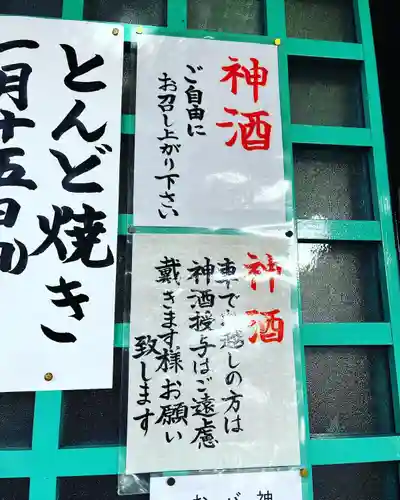 神酒
ご自由に
お召し上がり下さい
とんど焼き
一月十五日
神酒
車で
越しの方は
神酒授与はご遠慮
戴きます様お願い
致します
神